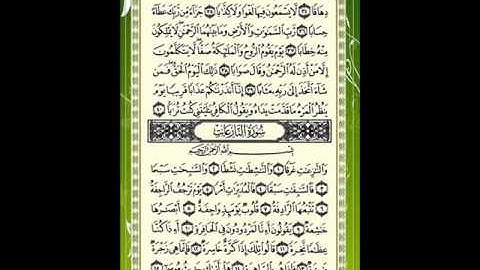 دِهَاقًا ٣٤ لَّا يَسْمَعُونَ فِيهَا لَغْوًا وَلَا كِذَّابًا ٣٥ جَزَاءً مِّن رَّبِّكَ عَطَاءً
حِسَابًا ٣٦ رَّبِّ السَّمَاوَاتِ وَالْأَرْضِ وَمَا بَيْنَهُمَا الرَّحْمَٰنِ لَا يَمْلِكُونَ
مِنْهُ خِطَابًا ٣٧ يَوْمَ يَقُومُ الرُّوحُ وَالْمَلَائِكَةُ صَفًّا لَّا يَتَكَلَّمُونَ
إِلَّا مَنْ أَذِنَ لَهُ الرَّحْمَٰنُ وَقَالَ صَوَابًا ٣٨ ذَٰلِكَ الْيَوْمُ الْحَقُّ فَمَن
شَاءَ اتَّخَذَ إِلَىٰ رَبِّهِ مَآبًا ٣٩ إِنَّا أَنذَرْنَاكُمْ عَذَابًا قَرِيبًا يَوْمَ
يَنظُرُ الْمَرْءُ مَا قَدَّمَتْ يَدَاهُ وَيَقُولُ الْكَافِرُ يَا لَيْتَنِي كُنتُ تُرَابًا ٤٠
سُورَةُ النَّازِعَاتِ
بِسْمِ اللَّهِ الرَّحْمَٰنِ الرَّحِيمِ
وَالنَّازِعَاتِ غَرْقًا ١ وَالنَّاشِطَاتِ نَشْطًا ٢ وَالسَّابِحَاتِ سَبْحًا
٣ فَالسَّابِقَاتِ سَبْقًا ٤ فَالْمُدَبِّرَاتِ أَمْرًا ٥ يَوْمَ تَرْجُفُ الرَّاجِفَةُ
٦ تَتْبَعُهَا الرَّادِفَةُ ٧ قُلُوبٌ يَوْمَئِذٍ وَاجِفَةٌ ٨ أَبْصَارُهَا
خَاشِعَةٌ ٩ يَقُولُونَ أَإِنَّا لَمَرْدُودُونَ فِي الْحَافِرَةِ ١٠ أَإِذَا كُنَّا
عِظَامًا نَّخِرَةً ١١ قَالُوا تِلْكَ إِذًا كَرَّةٌ خَاسِرَةٌ ١٢ فَإِنَّمَا هِيَ زَجْرَةٌ